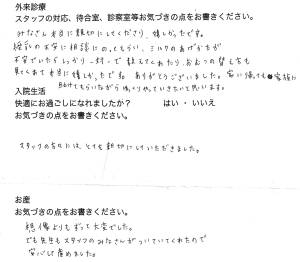 外来診療
スタッフの対応、待合室、診察室等お気づきの点をお書きください。
みなさん本当に親切にしてくださり、嬉しかったです。
授乳の本当に相談にのってもらい、ミルクのあげ方が
不安でいたらしっかり一対一で教えてくれたり、おむつの替え方も
見てくれて本当に嬉しかったです。ありがとうございました。家に帰っても家族に
助けてもらいながらゆっくりやっていきたいと思います。
入院生活
快適にお過ごしになれましたか？　はい ・ いいえ
お気づきの点をお書きください。
スタッフの方々には、とても親切にしていただきました。
お産
お気づきの点をお書きください。
想像よりもずっと大変でした。
でも先生もスタッフのみなさんがついていてくれたので
安心して産めました。